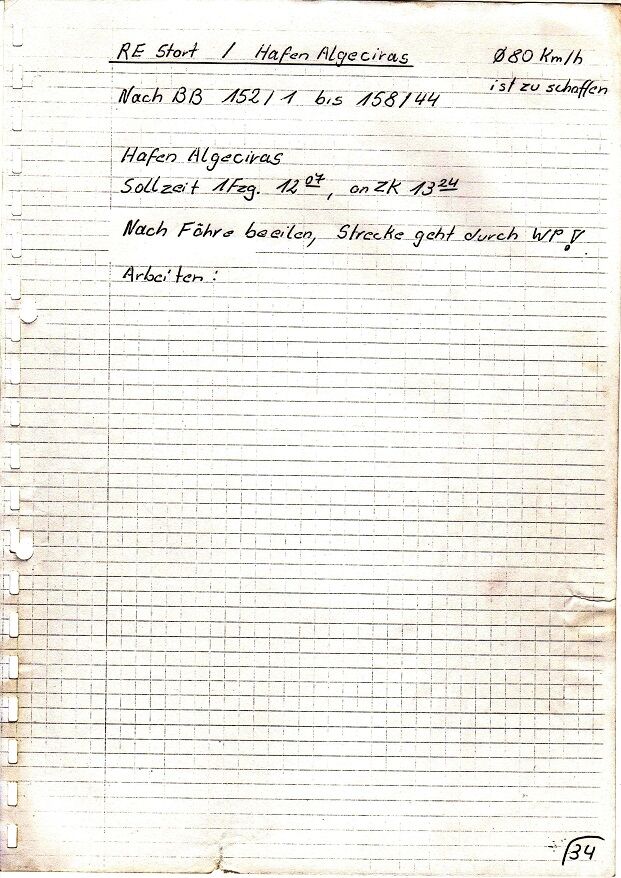 RE Start / Hafen Algeciras Ø80 Km/h
ist zu schaffen
Nach BB 152/1 bis 158/44
Hafen Algeciras
Sollzeit 1Fzg. 12 07, an ZK 13 24
Nach Fähre beeilen, Strecke geht durch WP!
Arbeiten:
34